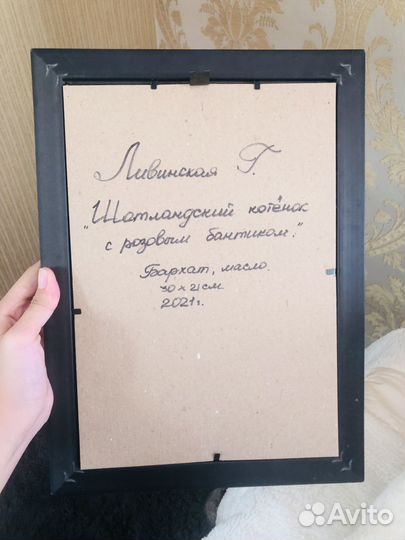 Ливинская Г.
"Шотландский котёнок
с розовым бантиком."
Бархат, масло.
30 x 21см
2021г.
Avito